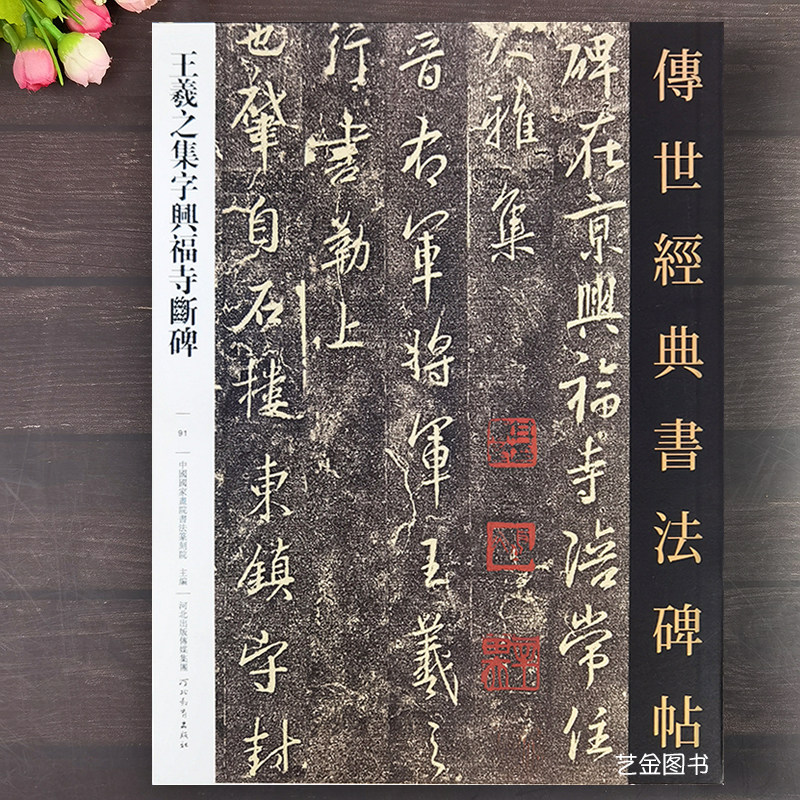 傳世經典書法碑帖
碑在京興福寺陪常住
大雅集
晉右軍將軍王羲之
行書勒上
也肇自石樓東鎮守封
王羲之集字興福寺斷碑
91
中國國家畫院書法篆刻院 主編
河北出版傳媒集團 河北教育出版社
艺金图书